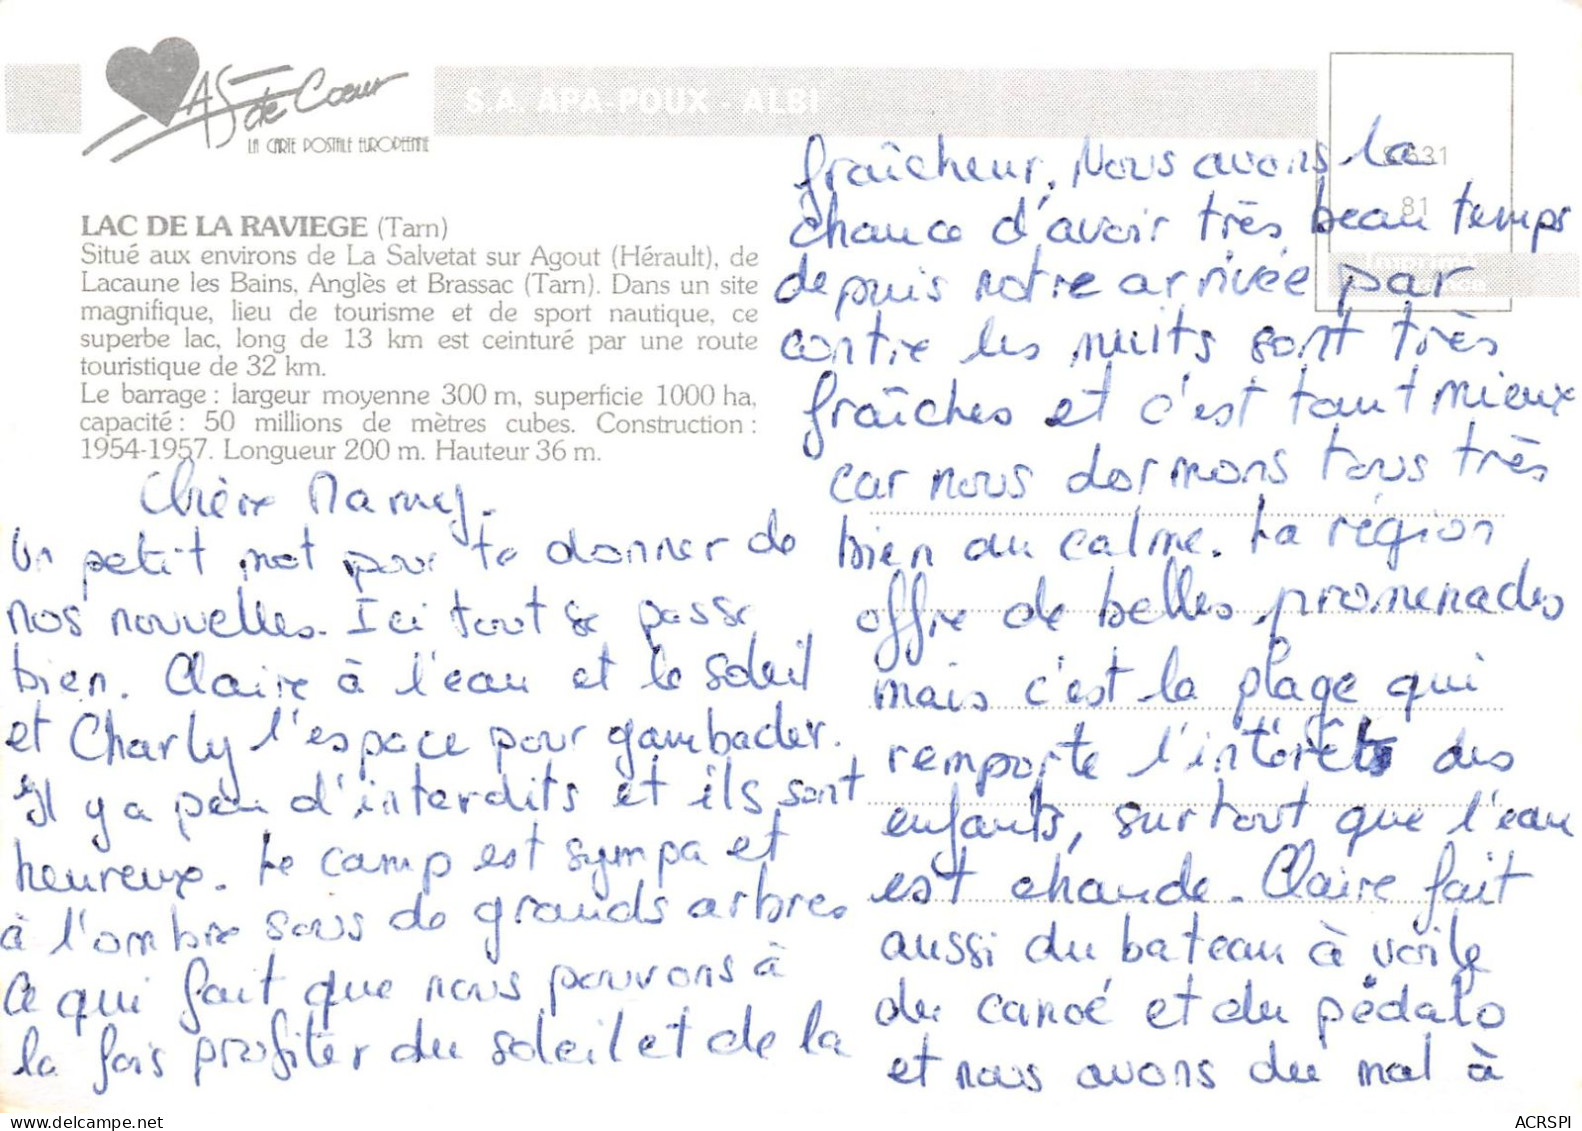 AS de Cœur
LA CARTE POSTALE EUROPÉENNE
S.A. APA-POUX - ALBI
LAC DE LA RAVIEGE (Tarn)
Situé aux environs de La Salvetat sur Agout (Hérault), de
Lacaune les Bains, Anglès et Brassac (Tarn). Dans un site
magnifique, lieu de tourisme et de sport nautique, ce
superbe lac, long de 13 km est ceinturé par une route
touristique de 32 km.
Le barrage : largeur moyenne 300 m, superficie 1000 ha,
capacité : 50 millions de mètres cubes. Construction :
1954-1957. Longueur 200 m. Hauteur 36 m.
81
Chère Mamy.
Un petit mot pour te donner de
nos nouvelles. Ici tout se passe
bien. Claire à l'eau et le soleil
et Charly l'espace pour gambader.
Il y a peu d'interdits et ils sont
heureux. Le camp est sympa et
à l'ombre sous de grands arbres
ce qui fait que nous pouvons à
la fois profiter du soleil et de la
fraîcheur. Nous avons la
chance d'avoir très beau temps
depuis notre arrivée par
contre les nuits sont très
fraîches et c'est tant mieux
car nous dormons tous très
bien au calme. La région
offre de belles promenades
mais c'est la plage qui
remporte l'intérêt des
enfants, surtout que l'eau
est chaude. Claire fait
aussi du bateau à voile
du canoé et du pédalo
et nous avons du mal à
ACRSPI